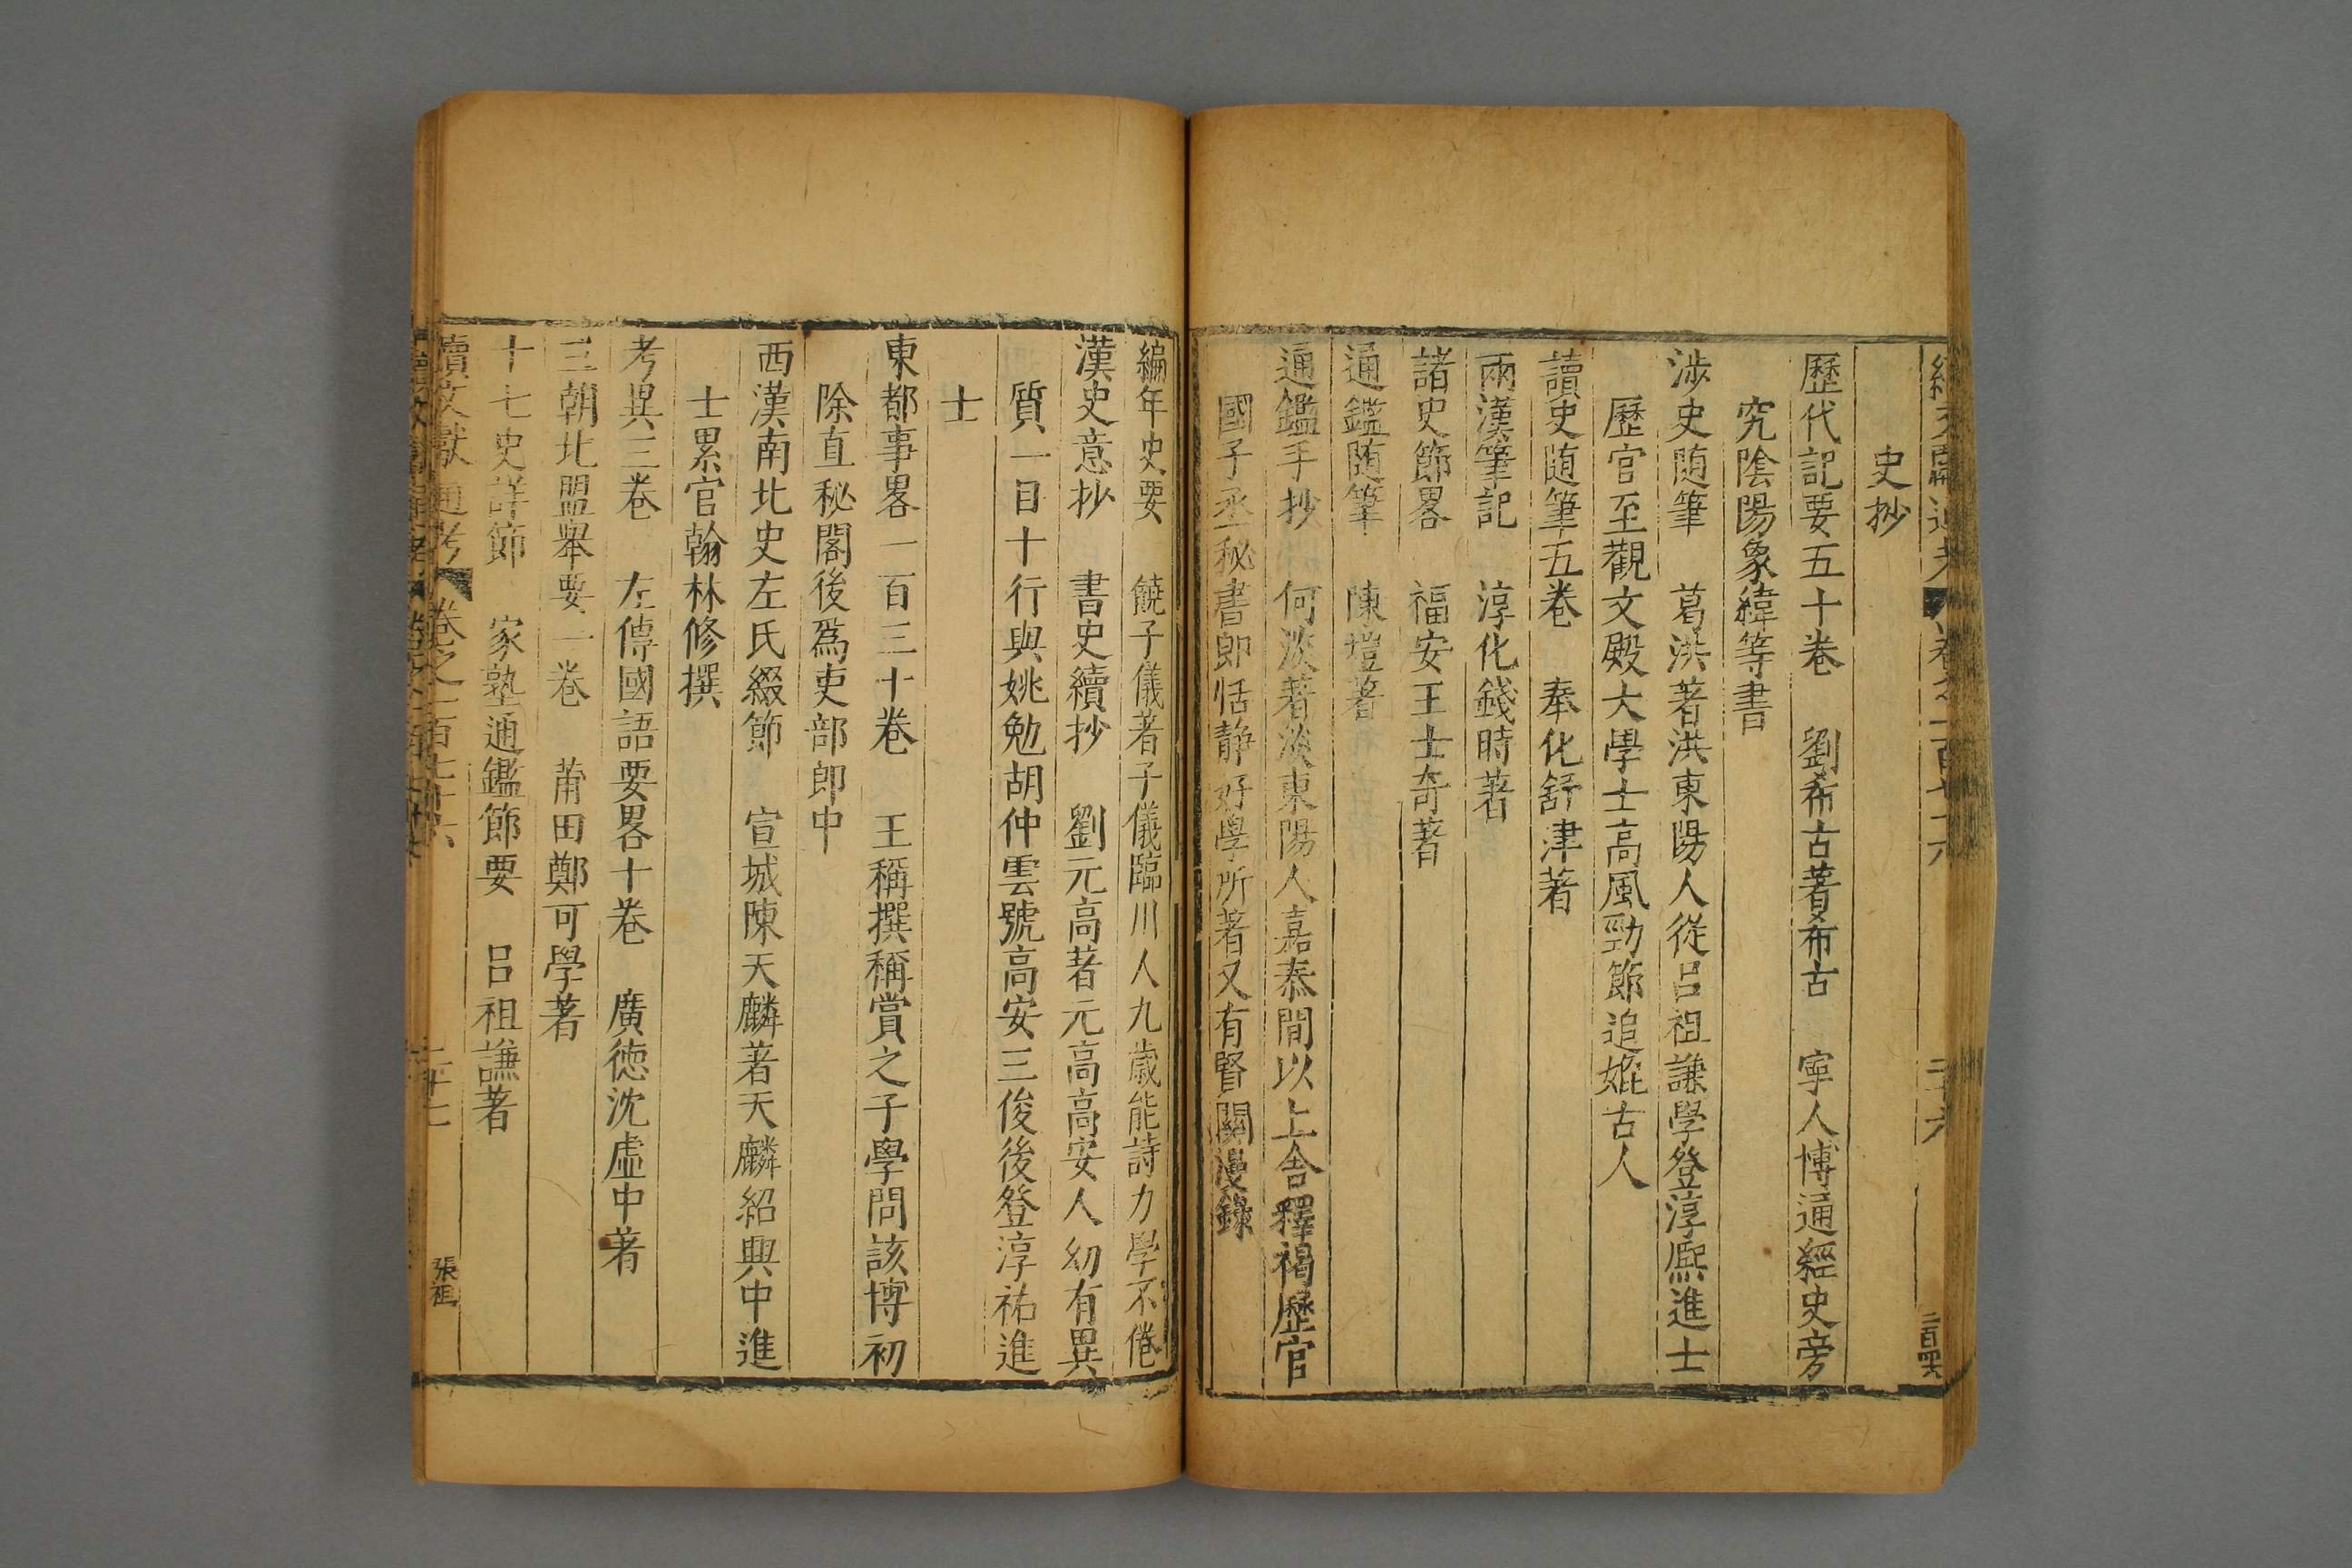 史抄
歷代記要五十卷 劉希古著希古 寧人博通經史旁
究陰陽象緯等書
涉史随筆 葛洪著洪東陽人從呂祖謙學登淳熈進士
歷官至觀文殿大學士高風勁節追媲古人
讀史随筆五卷 奉化舒津著
兩漢筆記 淳化錢時著
諸史節畧 福安王士奇著
通鑑随筆 陳塏著
通鑑手抄 何淡著淡東陽人嘉泰間以上舍釋褐歷官
國子丞秘書郎恬静好學所著又有賢關漫錄
編年史要 饒子儀著子儀臨川人九歲能詩力學不倦
漢史意抄 書史續抄 劉元高著元高高安人幼有異
質一目十行與姚勉胡仲雲號高安三俊後登淳祐進
士
東都事畧一百三十卷 王稱撰稱賞之子學問該博初
除直秘閣後爲吏部郎中
西漢南北史左氏綴節 宣城陳天麟著天麟紹興中進
士累官翰林修撰
考異三卷 左傳國語要畧十卷 廣徳沈虛中著
三朝北盟舉要一卷 莆田鄭可學著
十七史詳節 家塾通鑑節要 呂祖謙著
續文獻通考 卷之一百七十六 二十七 張祖